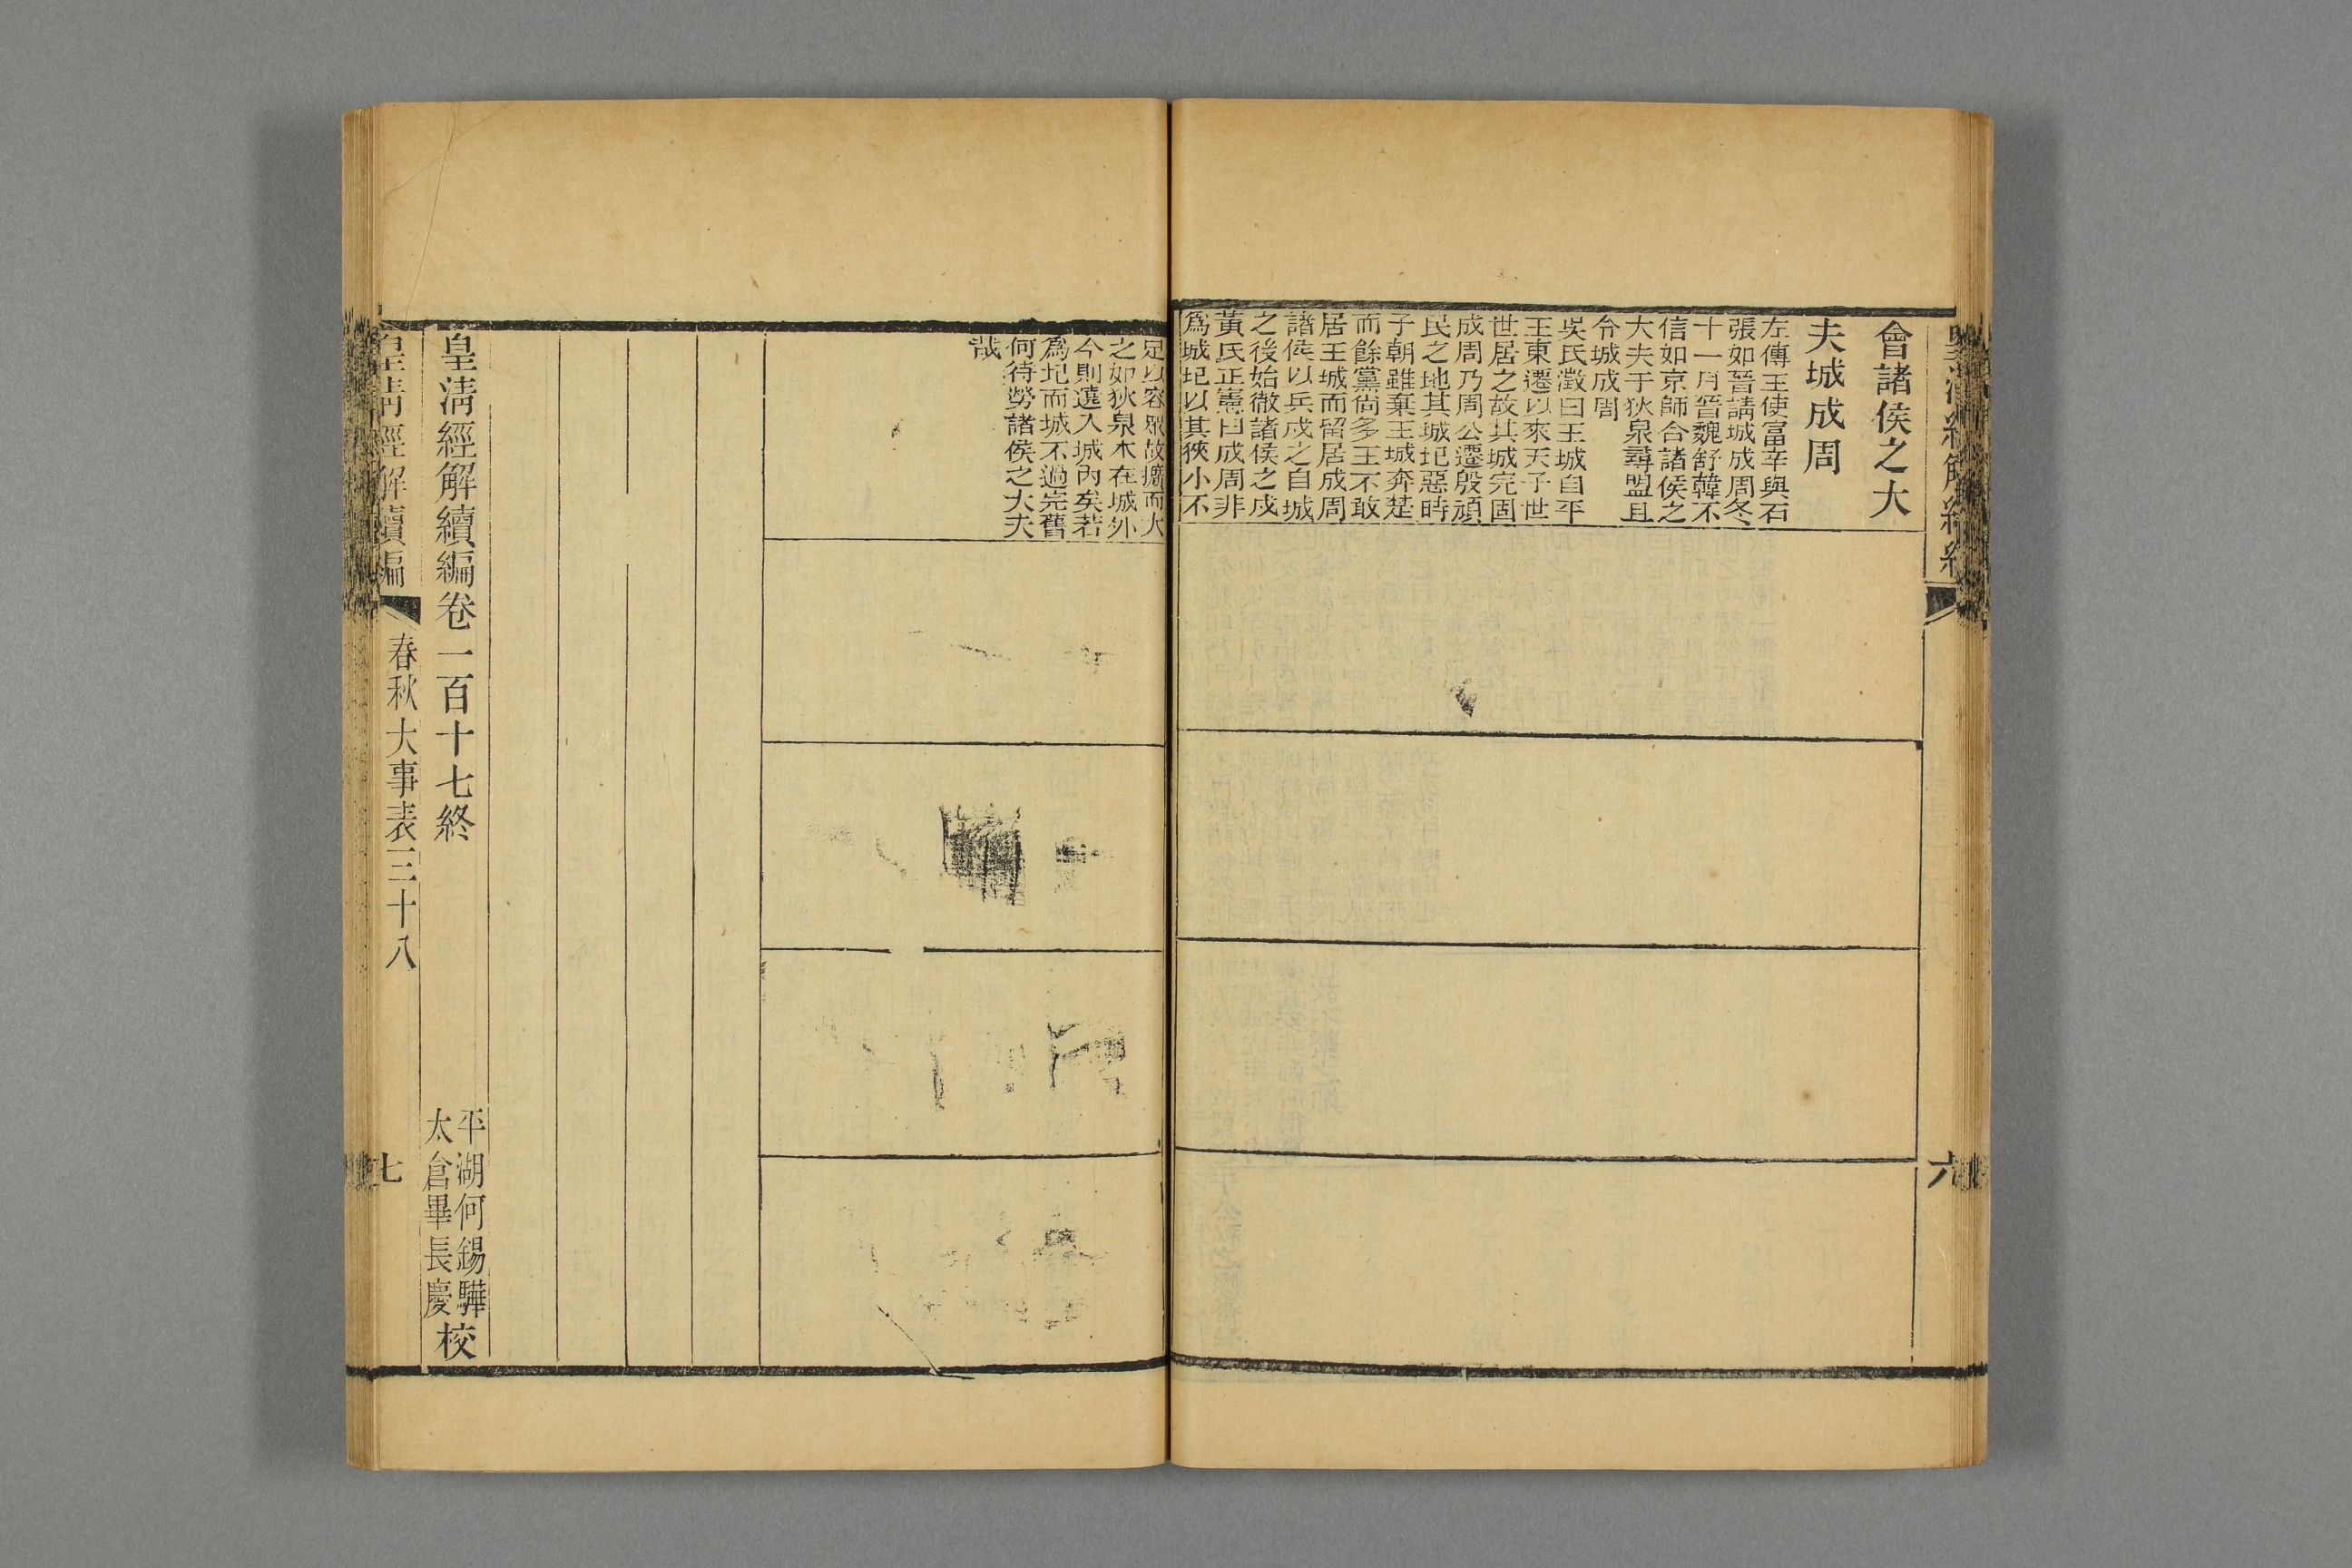 會諸侯之大
夫城成周
左傳王使富辛與石
張如晉請城成周冬
十一月晉魏舒韓不
信如京師合諸侯之
大夫于狄泉尋盟且
令城成周
吳氏澂曰王城自平
王東遷以來天子世
世居之故其城完固
成周乃周公遷殷頑
民之地其城圮惡時
子朝雖棄王城奔楚
而餘黨尚多王不敢
居王城而留居成周
諸侯以兵戍之自城
之後始徹諸侯之戍
黃氏正憲曰成周非
爲城圮以其狹小不
六
足以容眾故擴而大
之如狄泉本在城外
今則遶入城內矣若
爲圮而城不過完舊
何待勞諸侯之大夫
哉
皇清經解續編卷一百十七終
平湖何錫驊
太倉畢長慶
校
皇清經解續編
春秋大事表三十八
七